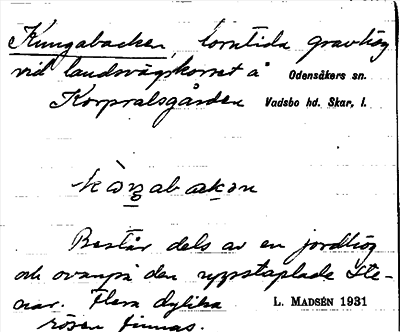 Kungabacken, forntida gravhög
vid landsvägskorset å Odensåkers sn.
Korpralsgården Vadsbo hd. Skar. l.
kɵŋabakən
Består dels av en jordhög
och ovanpå den uppstaplade Ste-
nar. Flera dylika L. MADSÉN 1931
rösen finnas.